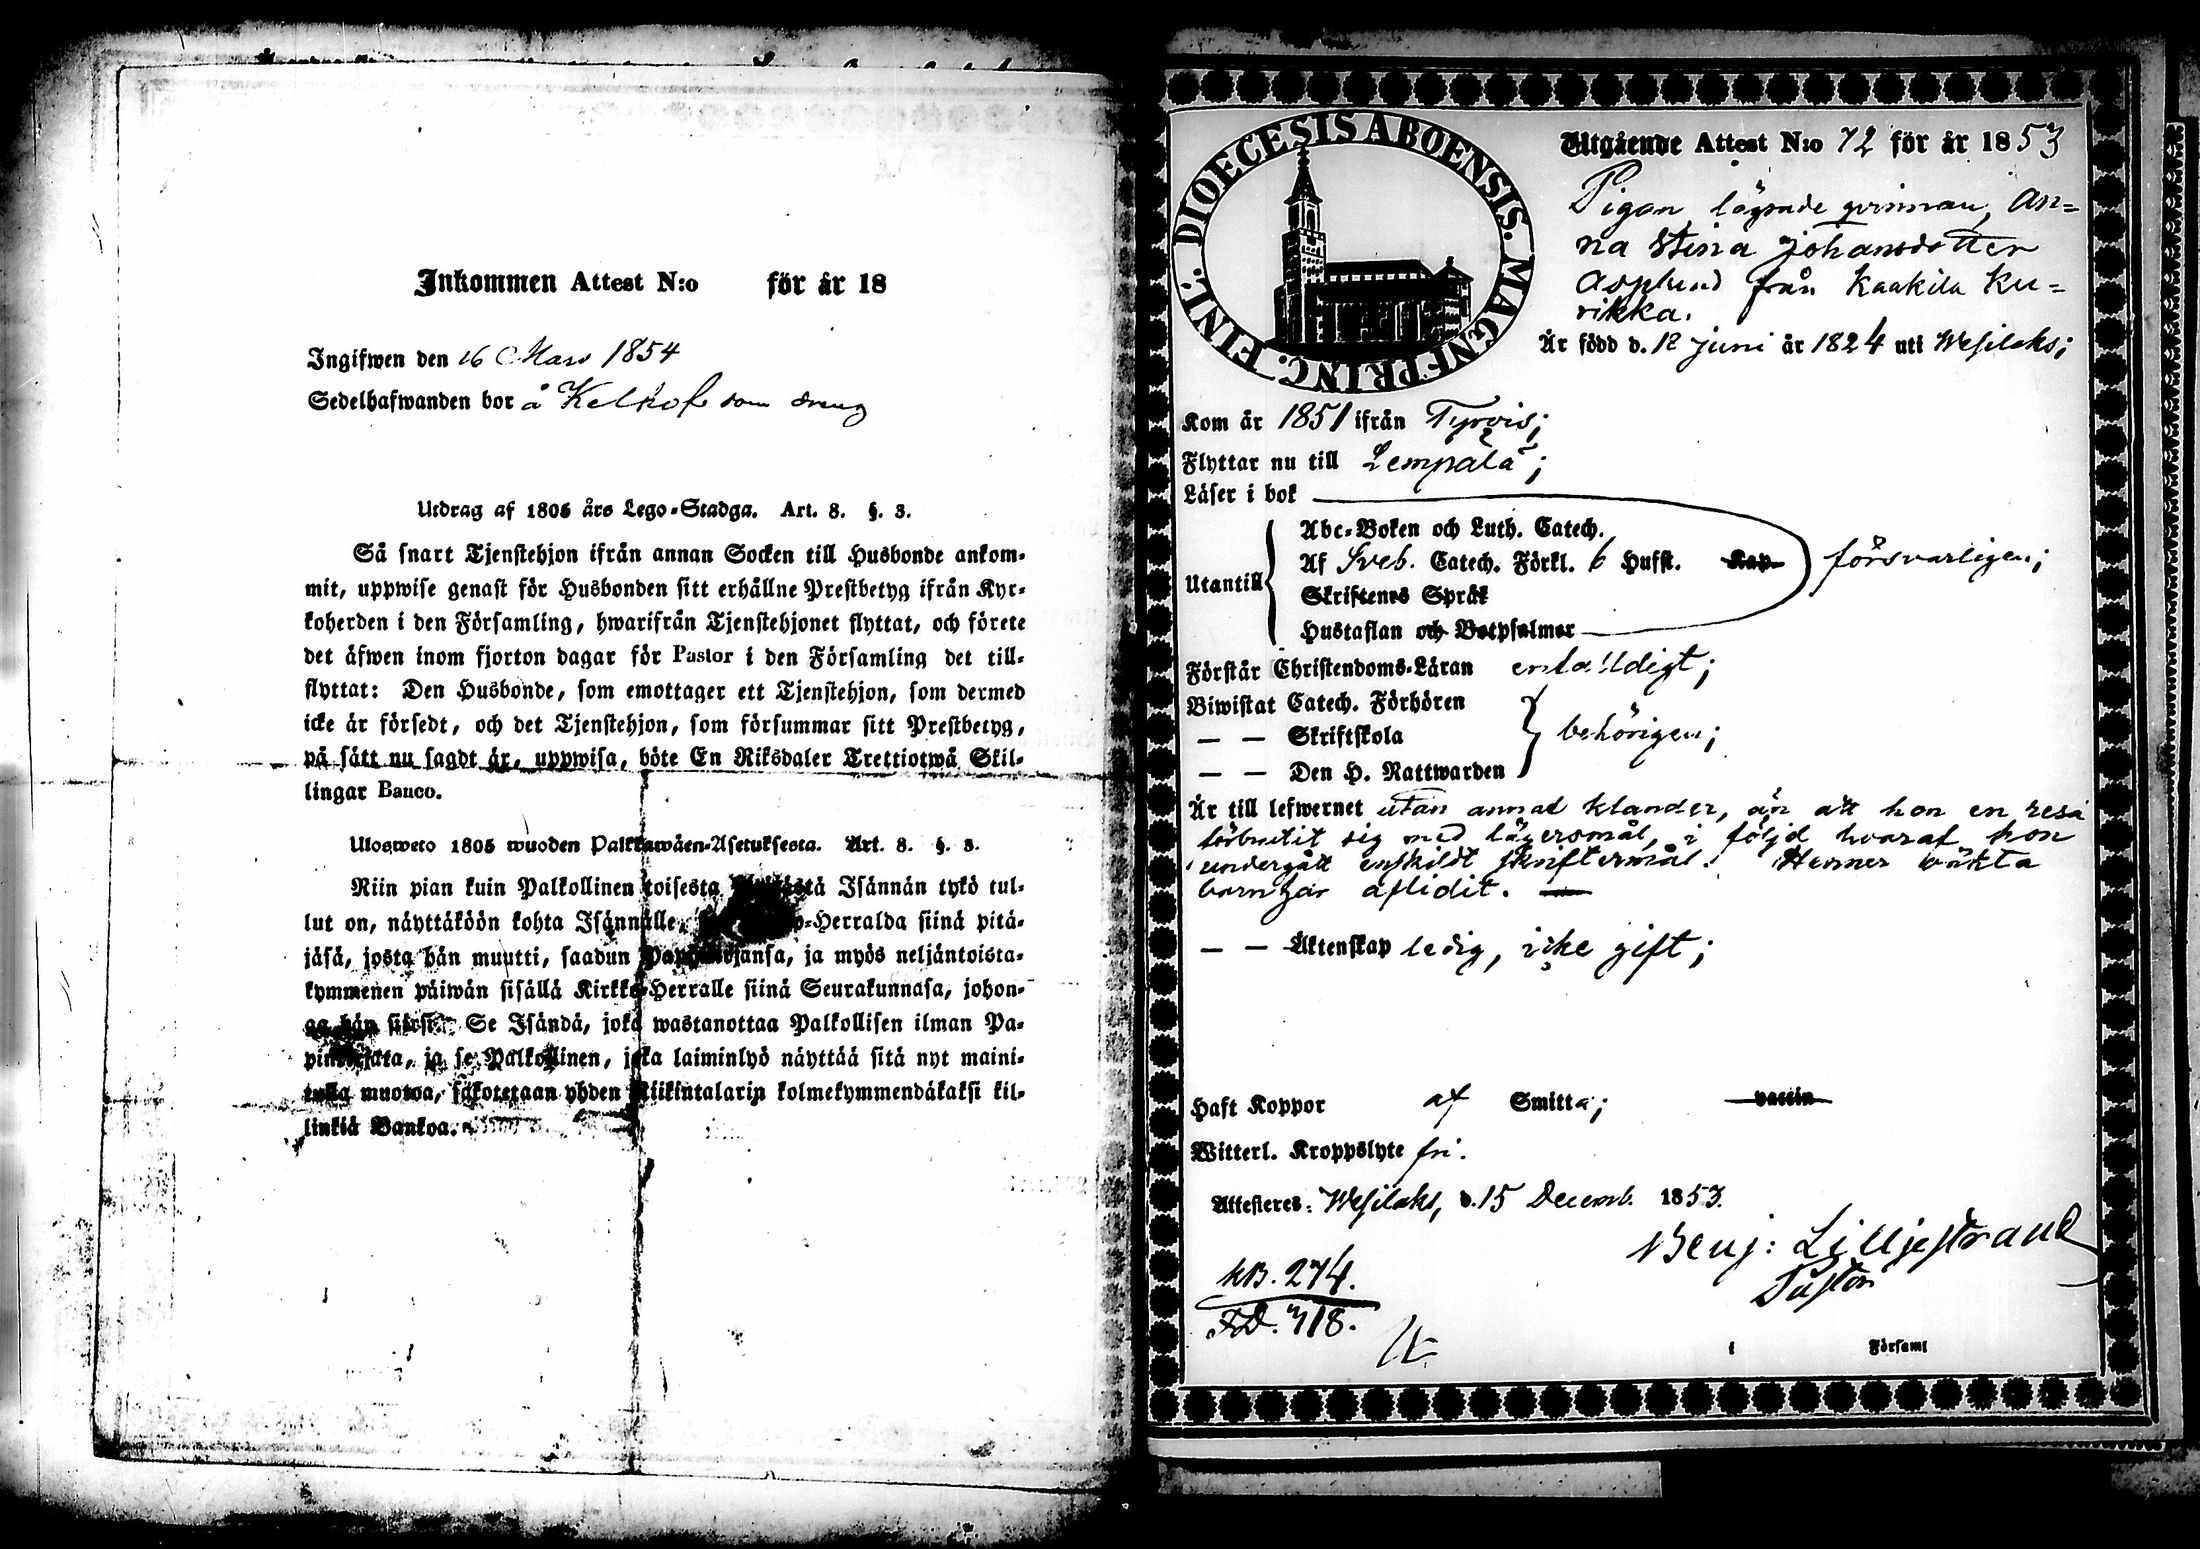 Inkommen Attest N:o för år 18
Ingifwen den 16 Mars 1854
Sedelhafwanden bor å Kelkof som dreng
Utdrag af 1805 års Lego-Stadga. Art. 8. §. 3.
Så snart Tjenstehjon ifrån annan Socken till Husbonde ankom-
mit, uppwise genast för Husbonden sitt erhållne Prestbetyg ifrån Kyr-
koherden i den Församling, hwarifrån Tjenstehjonet flyttat, och förete
det äfwen inom fjorton dagar för Pastor i den Församling det till-
flyttat: Den Husbonde, som emottager ett Tjenstehjon, som dermed
icke är försedt, och det Tjenstehjon, som försummar sitt Prestbetyg,
på sätt nu sagdt är, uppwisa, böte En Riksdaler Trettiotwå Skil-
lingar Banco.
Ulosweto 1805 wuoden Palkkawäen-Asetuksesta. Art. 8. §. 3.
Niin pian kuin Palkollinen toisesta Isännän tykö tul-
lut on, näyttäköön kohta Isännälle, -Herralda siinä pitä-
jäsä, josta hän muutti, saadun ja myös neljäntoista-
kymmenen päiwän sisällä Kirkko-Herralle siinä Seurakunnasa, johon-
ga hän siirsi. Se Isändä, joka wastanottaa Palkollisen ilman Pa-
pinkirjata, ja se Palkollinen, joka laiminlyö näyttää sitä nyt maini-
tulla muotoa, sakotetaan yhden Riikintalarin kolmekymmendäkaksi kil-
linkiä Bankoa.
DIOECESIS ABOENSIS. MAGNI PRINC. FINL.
Utgående Attest N:o 72 för år 1853
Pigan, lägrade qvinnan, An=
na Stina Johansdotter
Asplund från Kaakila Ku=
rikka.
Är född d. 12 Juni år 1824 uti Wesilaks;
Kom år 1851 ifrån Tyrvis;
Flyttar nu till Lempälä;
Läser i bok
Abc-Boken och Luth. Catech.
Utantill Af Sveb. Catech. Förkl. 6 Hufst. Kap. försvarligen;
Skriftenes Språk
Hustaflan och Botpsalmer
Förstår Christendoms-Läran enfalldigt;
Biwistat Catech. Förhören
— — Skriftskola behörigen;
— — Den H. Nattwarden
Är till lefwernet utan annat klander, än att hon en resa
förbrutit sig med lägersmål, i följd hvaraf hon
undergått enskildt skriftermål. Hennes oäkta
barn har aflidit. —
— — Äktenskap ledig, icke gift;
Haft Koppor af Smitta; vaccin
Witterl. Kroppslyte fri.
Attesteres: Wesilaks, d. 15 Decemb. 1853.
Benj: Lilljestrand
Pastor
KB. 274.
FD. 718.
i Församl